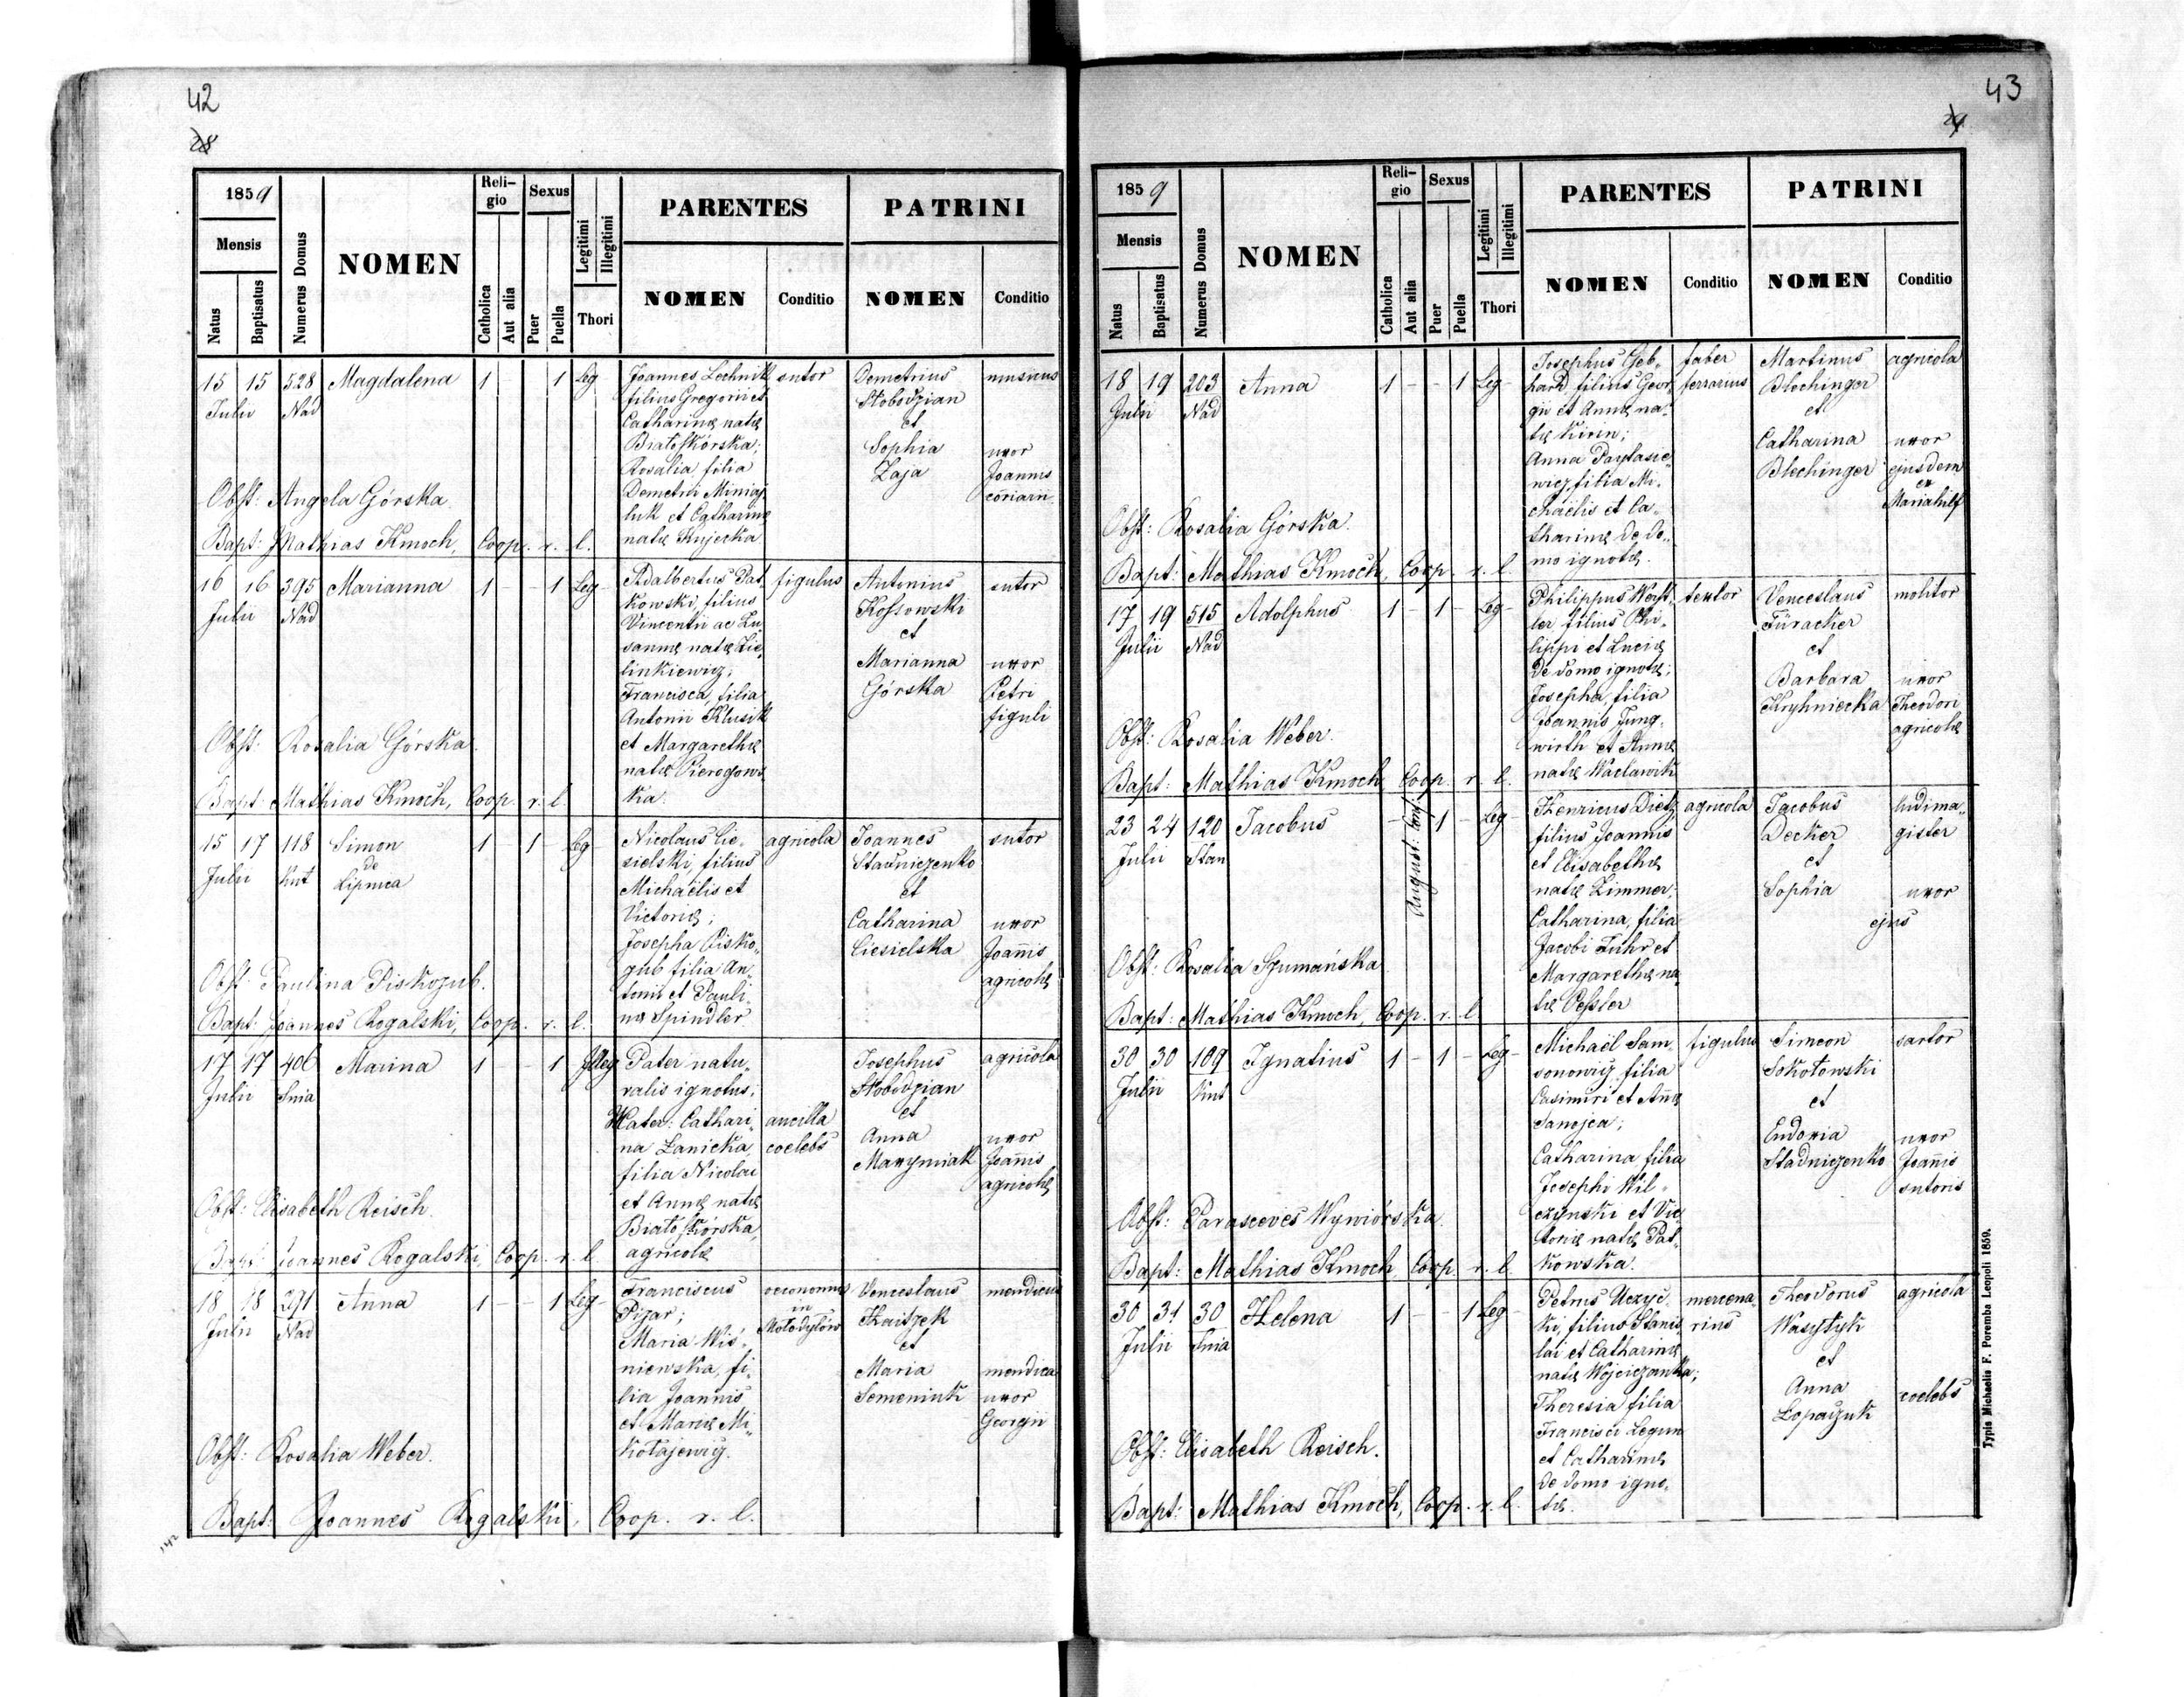 42
28
1859
Mensis
Natus
Baptisatus
Numerus Domus
NOMEN
Reli-
gio
Catholica
Aut alia
Sexus
Puer
Puella
Legitimi
Illegitimi
Thori
PARENTES
NOMEN
Conditio
PATRINI
NOMEN
Conditio
15 15 528 Magdalena 1 - - 1 Leg
Julii Nad
Joannes Lechnik
filius Gregorii et
Catharinæ natæ
Białoskórska;
Rosalia filia
Demetrii Miniaj
luk et Catharinæ
natæ Kujecka
sutor
Demetrius
Słobodzian
et
Sophia
Zaja
uxor
Joannis
coriarii
Obst: Angela Górska.
Bapt: Mathias Kmoch, Coop. r. l.
16 16 395 Marianna 1 - - 1 Leg
Julii Nad
Adalbertus Pat
kowski, filius
Vincentii ac Zu
sannæ natæ Zie
linkiewicz;
Francisca, filia
Antonii Klusik
et Margarethæ
natæ Pierogows
ka.
figulus
Antonius
Kossowski
et
Marianna
Górska
sutor
uxor
Petri
figuli
Obst: Rosalia Górska.
Bapt: Mathias Kmoch, Coop. r. l.
15 17 118 Simon 1 - 1 - Leg
de
Julii Knt Lipnica
Nicolaus Cie-
sielski, filius
Michaëlis et
Victoriæ;
Josepha Pisko-
zub filia An-
tonii et Pauli-
næ Spindler
agricola
Joannes
Stadniczenko
et
Catharina
Ciesielska
sutor
uxor
Joannis
agricolæ
Obst: Paulina Piskozub.
Bapt: Joannes Rogalski, Coop. r. l.
17 17 406 Marina 1 - - 1 Illeg
Julii Snia
Pater natu-
ralis ignotus;
Mater: Cathari-
na Łanicka,
filia Nicolai
et Annæ natæ
Białoskórska,
agricolæ
ancilla
coelebs
Josephus
Słobodzian
et
Anna
Maxymiak
agricola
uxor
Joannis
agricolæ
Obst: Elisabeth Reisch.
Bapt: Joannes Rogalski, Coop. r. l.
18 18 291 Anna 1 - - 1 Leg
Julii Nad
Franciscus
Pizar;
Maria Wiś-
niewska, fi-
lia Joannis
et Mariæ Mi-
kołajewicz.
oeconomus
in
Mołodyłów
Venceslaus
Kaitzek
et
Maria
Semeniuk
mendicus
mendica
uxor
Georgii
Obst: Rosalia Weber.
Bapt: Joannes Rogalski, Coop. r. l.
43
1859
Mensis
Natus
Baptisatus
Numerus Domus
NOMEN
Reli-
gio
Catholica
Aut alia
Sexus
Puer
Puella
Legitimi
Illegitimi
Thori
PARENTES
NOMEN
Conditio
PATRINI
NOMEN
Conditio
18 19 203 Anna 1 - - 1 Leg
Julii Nad
Josephus Geb-
hard, filius Geor-
gii et Annæ na-
tæ Kirin;
Anna Dayłasie-
wicz, filia Mi-
chaëlis et Ca-
tharinæ de do-
mo ignotæ.
faber
ferrarius
Martinus
Blechinger
et
Catharina
Blechinger
agricola
uxor
ejusdem
ex
Mariahilf
Obst: Rosalia Górska.
Bapt: Mathias Kmoch, Coop. r. l.
17 19 515 Adolphus 1 - 1 - Leg
Julii Nad
Philippus
filius Phi-
lippi et Luciæ
de domo ignotæ;
Josepha, filia
Joannis Jung-
wirth et Annæ
natæ Waclawik
textor
Venceslaus
Füracker
et
Barbara
Kryhniecka
molitor
uxor
Theodori
agricolæ
Obst: Rosalia Weber.
Bapt: Mathias Kmoch Coop. r. l.
23 24 120 Jacobus - August: Conf: 1 - Leg
Julii Slan
Henricus Dietz
filius Joannis
et Elisabethæ
natæ Zimmer;
Catharina, filia
Jacobi Fuhr et
Margarethæ na-
tæ Oessler
agricola
Jacobus
Decker
et
Sophia
ludima-
gister
uxor
ejus
Obst: Rosalia Szumańska
Bapt: Mathias Kmoch, Coop. r. l.
30 30 109 Ignatius 1 - 1 - Leg
Julii Knt
Michaël Sam-
sonowicz, filia
Casimiri et Annæ
Sanojca;
Catharina, filia
Josephi Wil-
czynski et Vic
toriæ natæ Pat-
kowska.
figulus
Simeon
Sokołowski
et
Eudoxia
Stadniczenko
sartor
uxor
Joannis
sutoris
Obst: Parasceves Wywiórska.
Bapt: Mathias Kmoch Coop. r. l.
30 31 30 Helena 1 - - 1 Leg
Julii Snia
Petrus Uczyc-
ki, filius Stanis
lai et Catharinæ
natæ Wojciczanka;
Theresia filia
Francisci Legun
et Catharinæ
de domo igno-
tæ.
mercena-
rius
Theodorus
Wasyłyk
et
Anna
Łopaczuk
agricola
coelebs
Obst: Elisabeth Reisch.
Bapt: Mathias Kmoch, Coop. r. l.
Typis Michaelis F. Poremba Leopoli 1859.